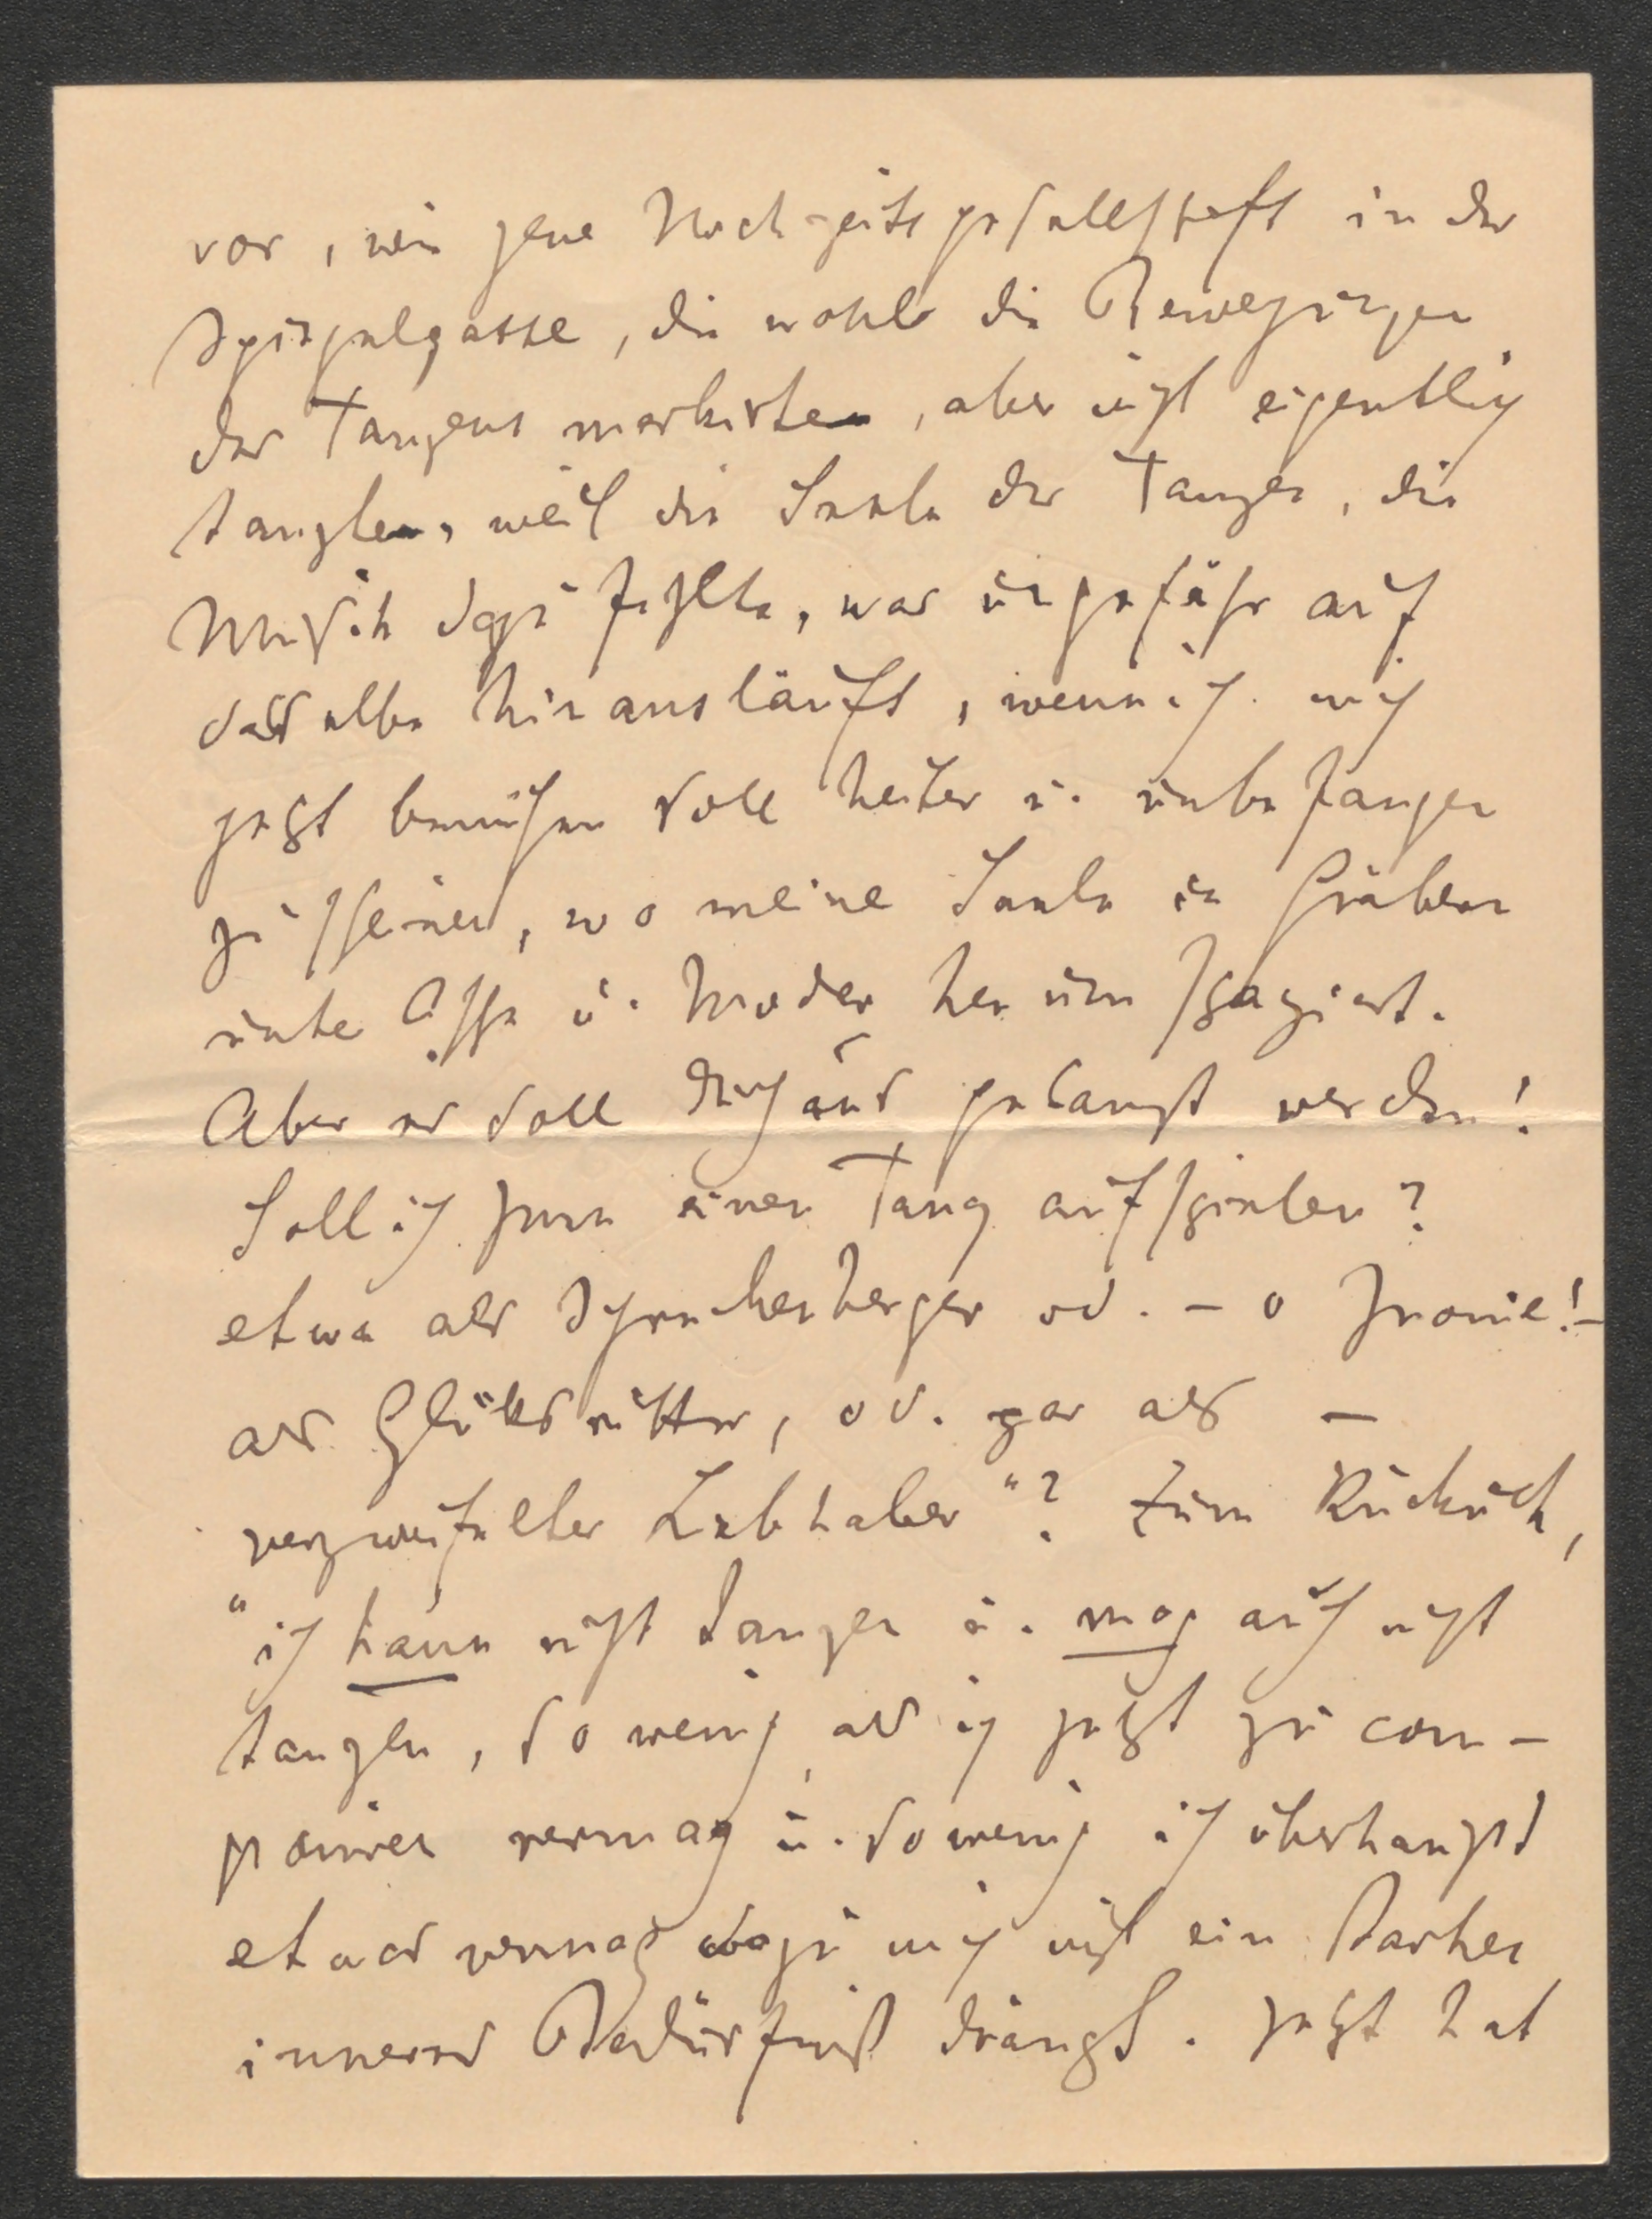 vor, wie jene Hochzeitsgesellschaft in der
Spiegelgasse, die wohl die Bewegungen
des Tanzens markirten, aber nicht eigentlich
tanzten, weil die Seele des Tanzes, die
Musik dazu fehlte, was ungefähr auf
dasselbe hinausläuft, wenn ich mich
jetzt bemühen soll heiter u. unbefangen
zu scheinen, wo meine Seele in Gräbern
unter Asche u. Moder herum spaziert.
Aber es soll durchaus getanzt werden!
Soll ich Ihnen einen Tanz aufspielen?
etwa als od. – o Ironie! –
als Glücksritter, od. gar als –
verzweifelter Liebhaber"? Zum Kuckuck,
"ich kann nicht tanzen u. mag auch nicht
tanzen, so wenig als ich jetzt zu com-
poniren vermag u. so wenig ich überhaupt
etwas vermag wozu mich nicht ein starkes
inneres Bedürfniß drängt. Jetzt hat